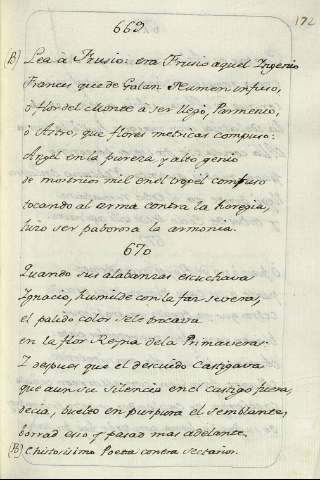 172
669
(B) Lea à Frusio: era Frusio aquel Ingenio
Frances que de Galan Numen infuso,
ò flor del monte à ser llegò, Parmenio,
ò Astro, que flores metricas compuso:
Angel en la pureza y alto genio
de monstruos mil en el tropèl confuso
tocando al arma contra la heregia,
hizo ser paborosa la armonia.
670
Quando sus alabanzas escuchava
Ignacio, humilde con la faz severa,
el palido color se le trocava
en la flor Reyna de la Primavera:
I despues que el descuido castigava
que aun su silencio en el castigo fuera,
decia, buelto en purpura el semblante,
borrad esso y pasad mas adelante.
(B) Chistosissimo Poeta contra sectarios.